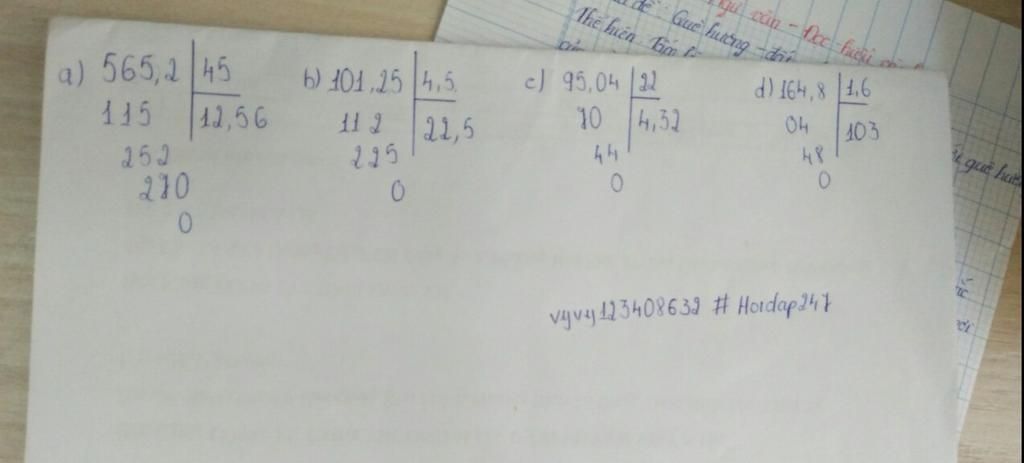 ngữ văn - Đọc - hiểu
đề: Quê hương - đất
Thể hiện
a) 565,2 45
115 12,56
252
270
0
b) 101,25 4,5
112 22,5
225
0
c) 95,04 22
70 4,32
44
0
d) 164,8 1,6
04 103
48
0
quê hươ
vyvy123408632 # Hoidap247